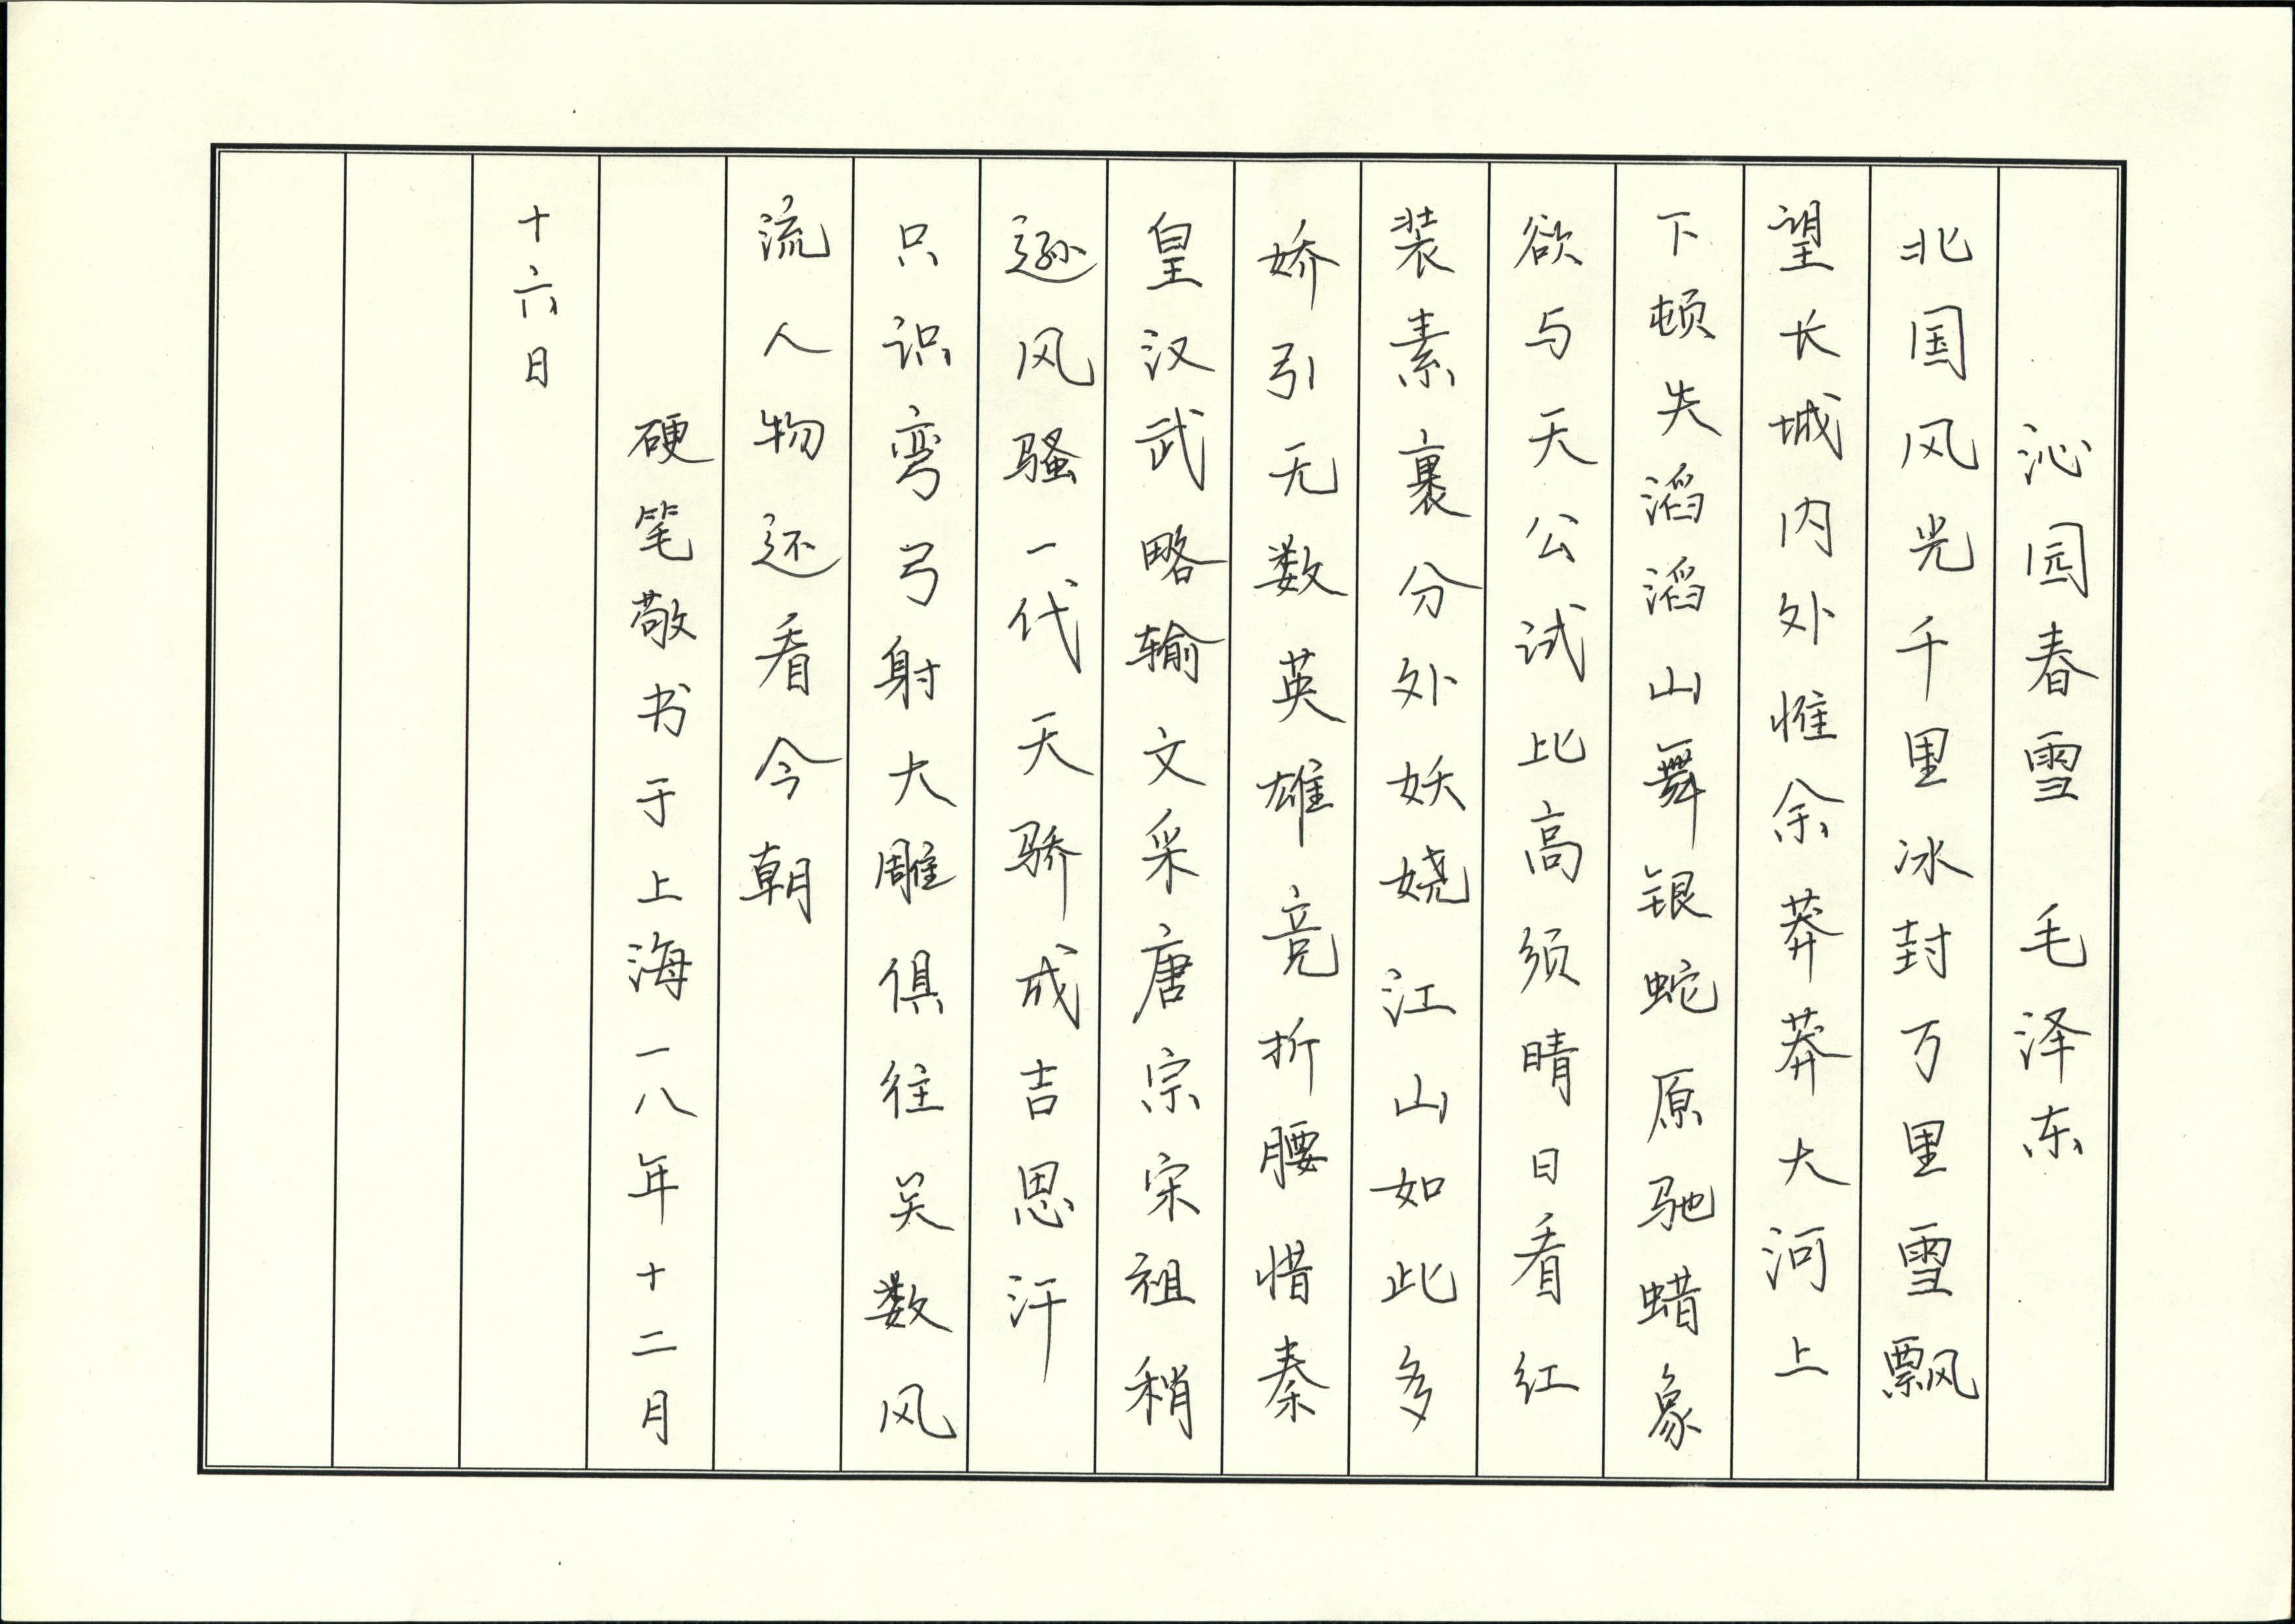 沁园春雪 毛泽东
北国风光千里冰封万里雪飘
望长城内外惟余莽莽大河上
下顿失滔滔山舞银蛇原驰蜡象
欲与天公试比高须晴日看红
装素裹分外妖娆江山如此多
娇引无数英雄竞折腰惜秦
皇汉武略输文采唐宗宋祖稍
逊风骚一代天骄成吉思汗
只识弯弓射大雕俱往矣数风
流人物还看今朝
硬笔敬书于上海一八年十二月
十六日